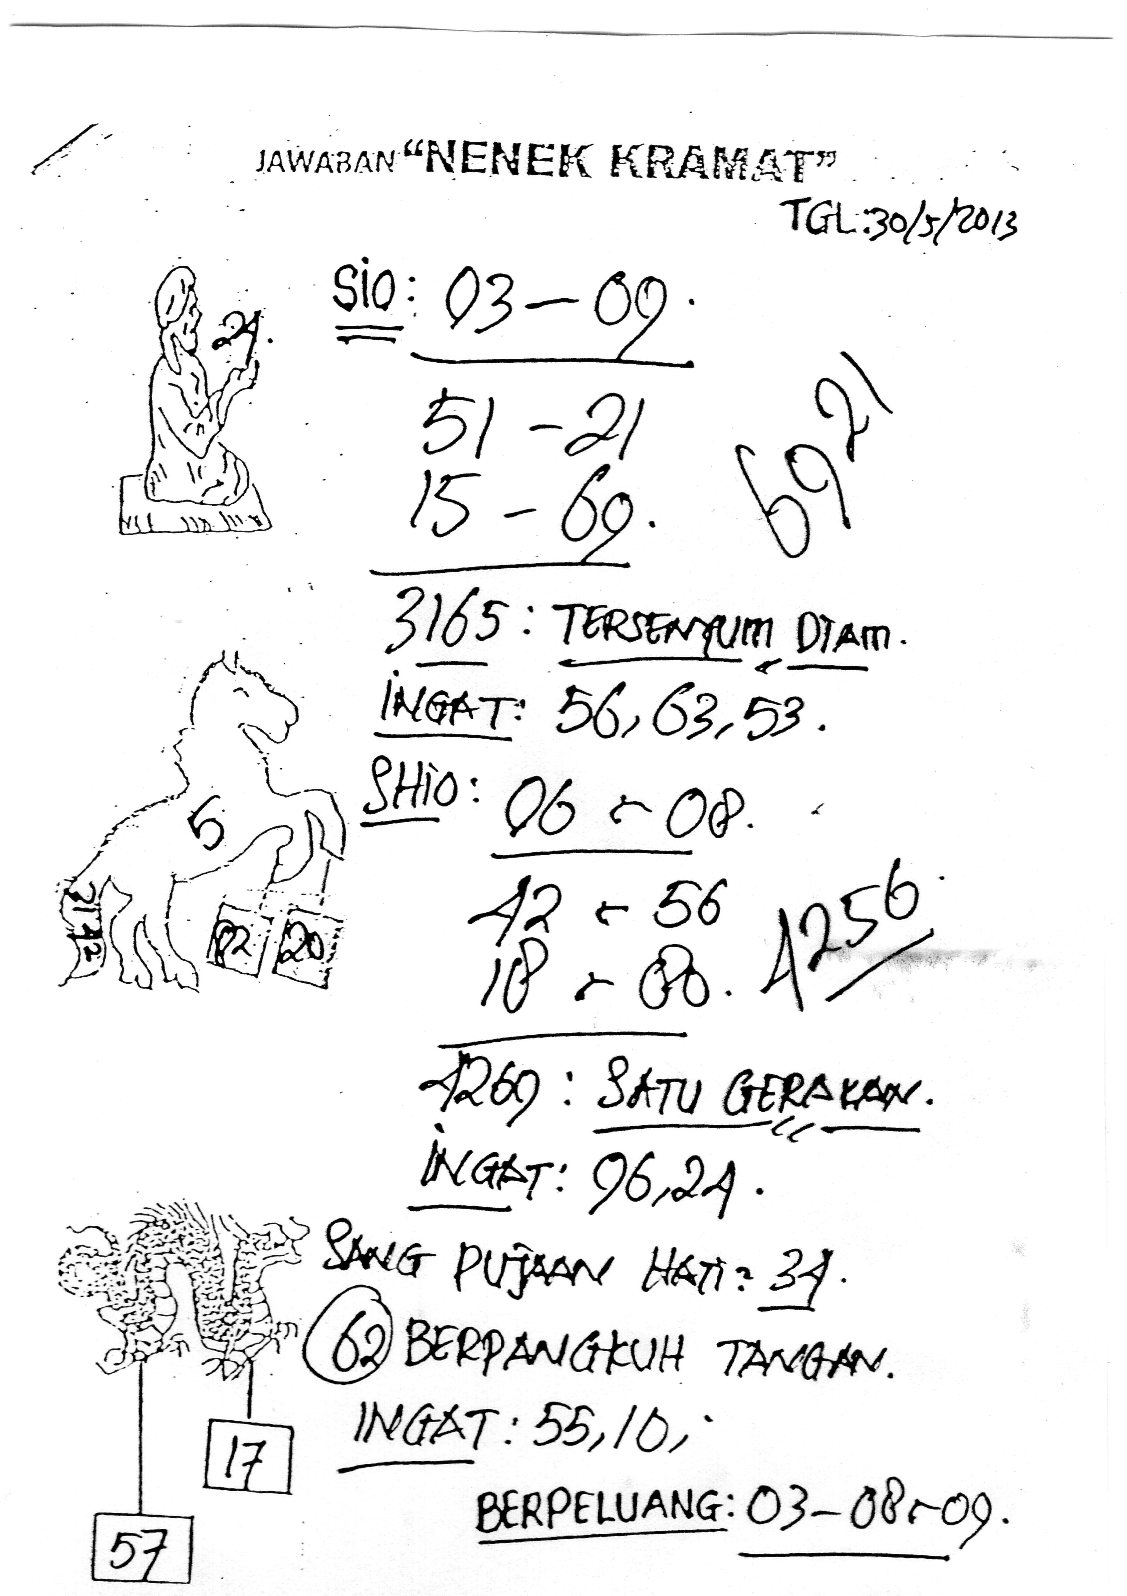 JAWABAN “NENEK KRAMAT”
TGL:30/5/2013
SiO: 03 – 09.
24.
51 – 21
15 – 69.
6921
3165: TERSENYUM DIAM.
iNGAT: 56, 63, 53.
SHiO: 06 – 08.
5
42 – 56
18 – 80.
4256
82
20
4269: SATU GERAKAN.
iNGAT: 96, 24.
SANG PUJAAN HATi: 34.
62 BERPANGKUH TANGAN.
INGAT: 55, 10,
17
BERPELUANG: 03 – 08 – 09.
57